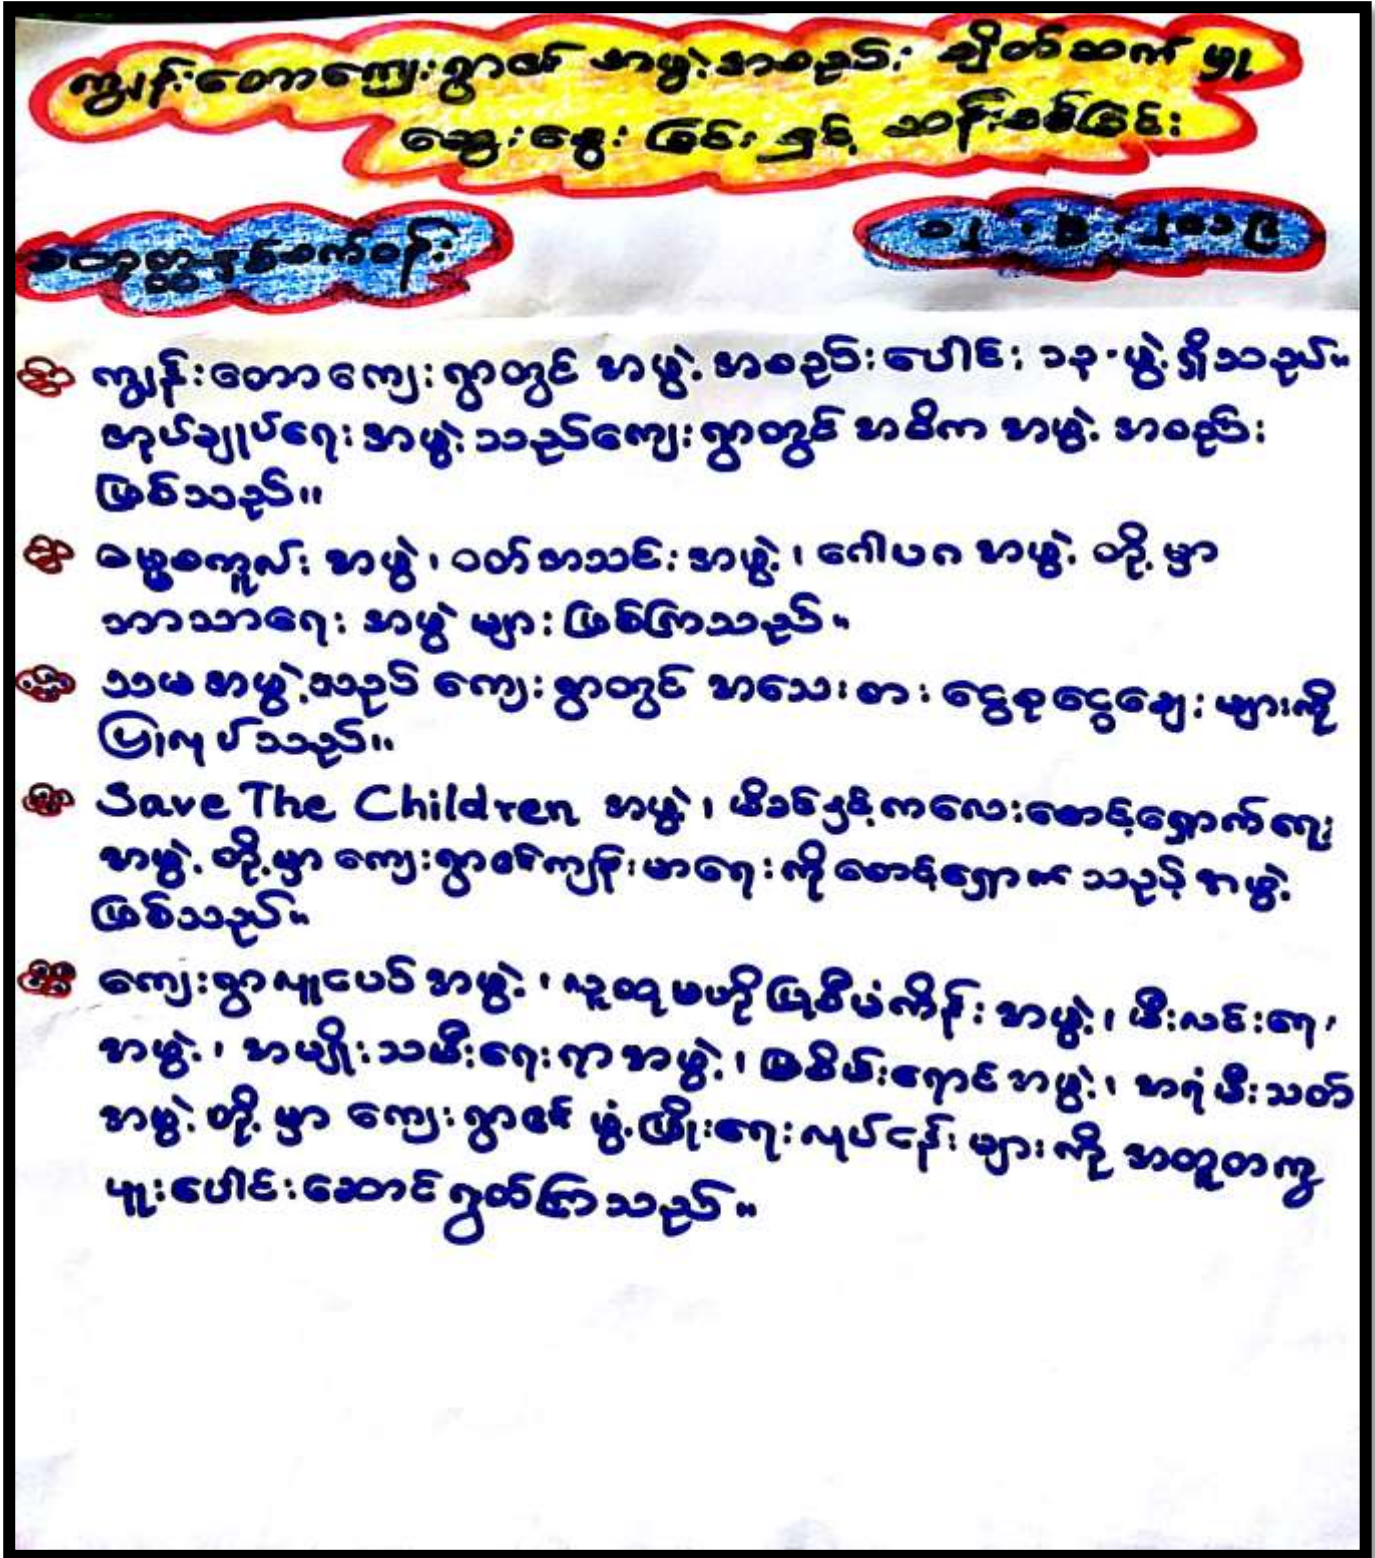 ကျွန်းတောကျေးရွာ၏ အဖွဲ့အစည်း ချိတ်ဆက် မှု
ဆွေးနွေး ခြင်း နှင့် ဆန်းစစ်ခြင်း
စတုတ္ထနှစ်စက်ဝန်း
၁၂.၃.၂၀၁၉
ကျွန်းတောကျေးရွာတွင် အဖွဲ့အစည်းပေါင်း ၁၃.ဖွဲ့ရှိသည်။
အုပ်ချုပ်ရေးအဖွဲ့သည်ကျေးရွာတွင် အဓိက အဖွဲ့ အစည်း
ဖြစ်သည်။
ဓမ္မစကူးလ် အဖွဲ့၊ ဝတ်အသင်းအဖွဲ့၊ ဂေါပက အဖွဲ့ တို့မှာ
ဘာသာရေး အဖွဲ့ များ ဖြစ်ကြသည်။
သမ အဖွဲ့သည် ကျေးရွာတွင် အသေးစား ငွေစုငွေချေး များကို
ပြုလုပ်သည်။
Save The Children အဖွဲ့၊ မိခင်နှင့်ကလေးစောင့်ရှောက်ရေး
အဖွဲ့ တို့မှာ ကျေးရွာ၏ကျန်းမာရေးကိုစောင့်ရှောက်သည့်အဖွဲ့
ဖြစ်သည်။
ကျေးရွာလူငယ်အဖွဲ့၊ လူထုဗဟိုပြုစီမံကိန်း အဖွဲ့၊ မီးလင်းရေး
အဖွဲ့၊ အမျိုးသမီးရေးရာအဖွဲ့၊ မြစိမ်းရောင်အဖွဲ့၊ အရံမီးသတ်
အဖွဲ့ တို့ မှာ ကျေးရွာ၏ ဖွံ့ဖြိုးရေးလုပ်ငန်းများကို အတူတကွ
ပူးပေါင်းဆောင်ရွက်ကြသည်။